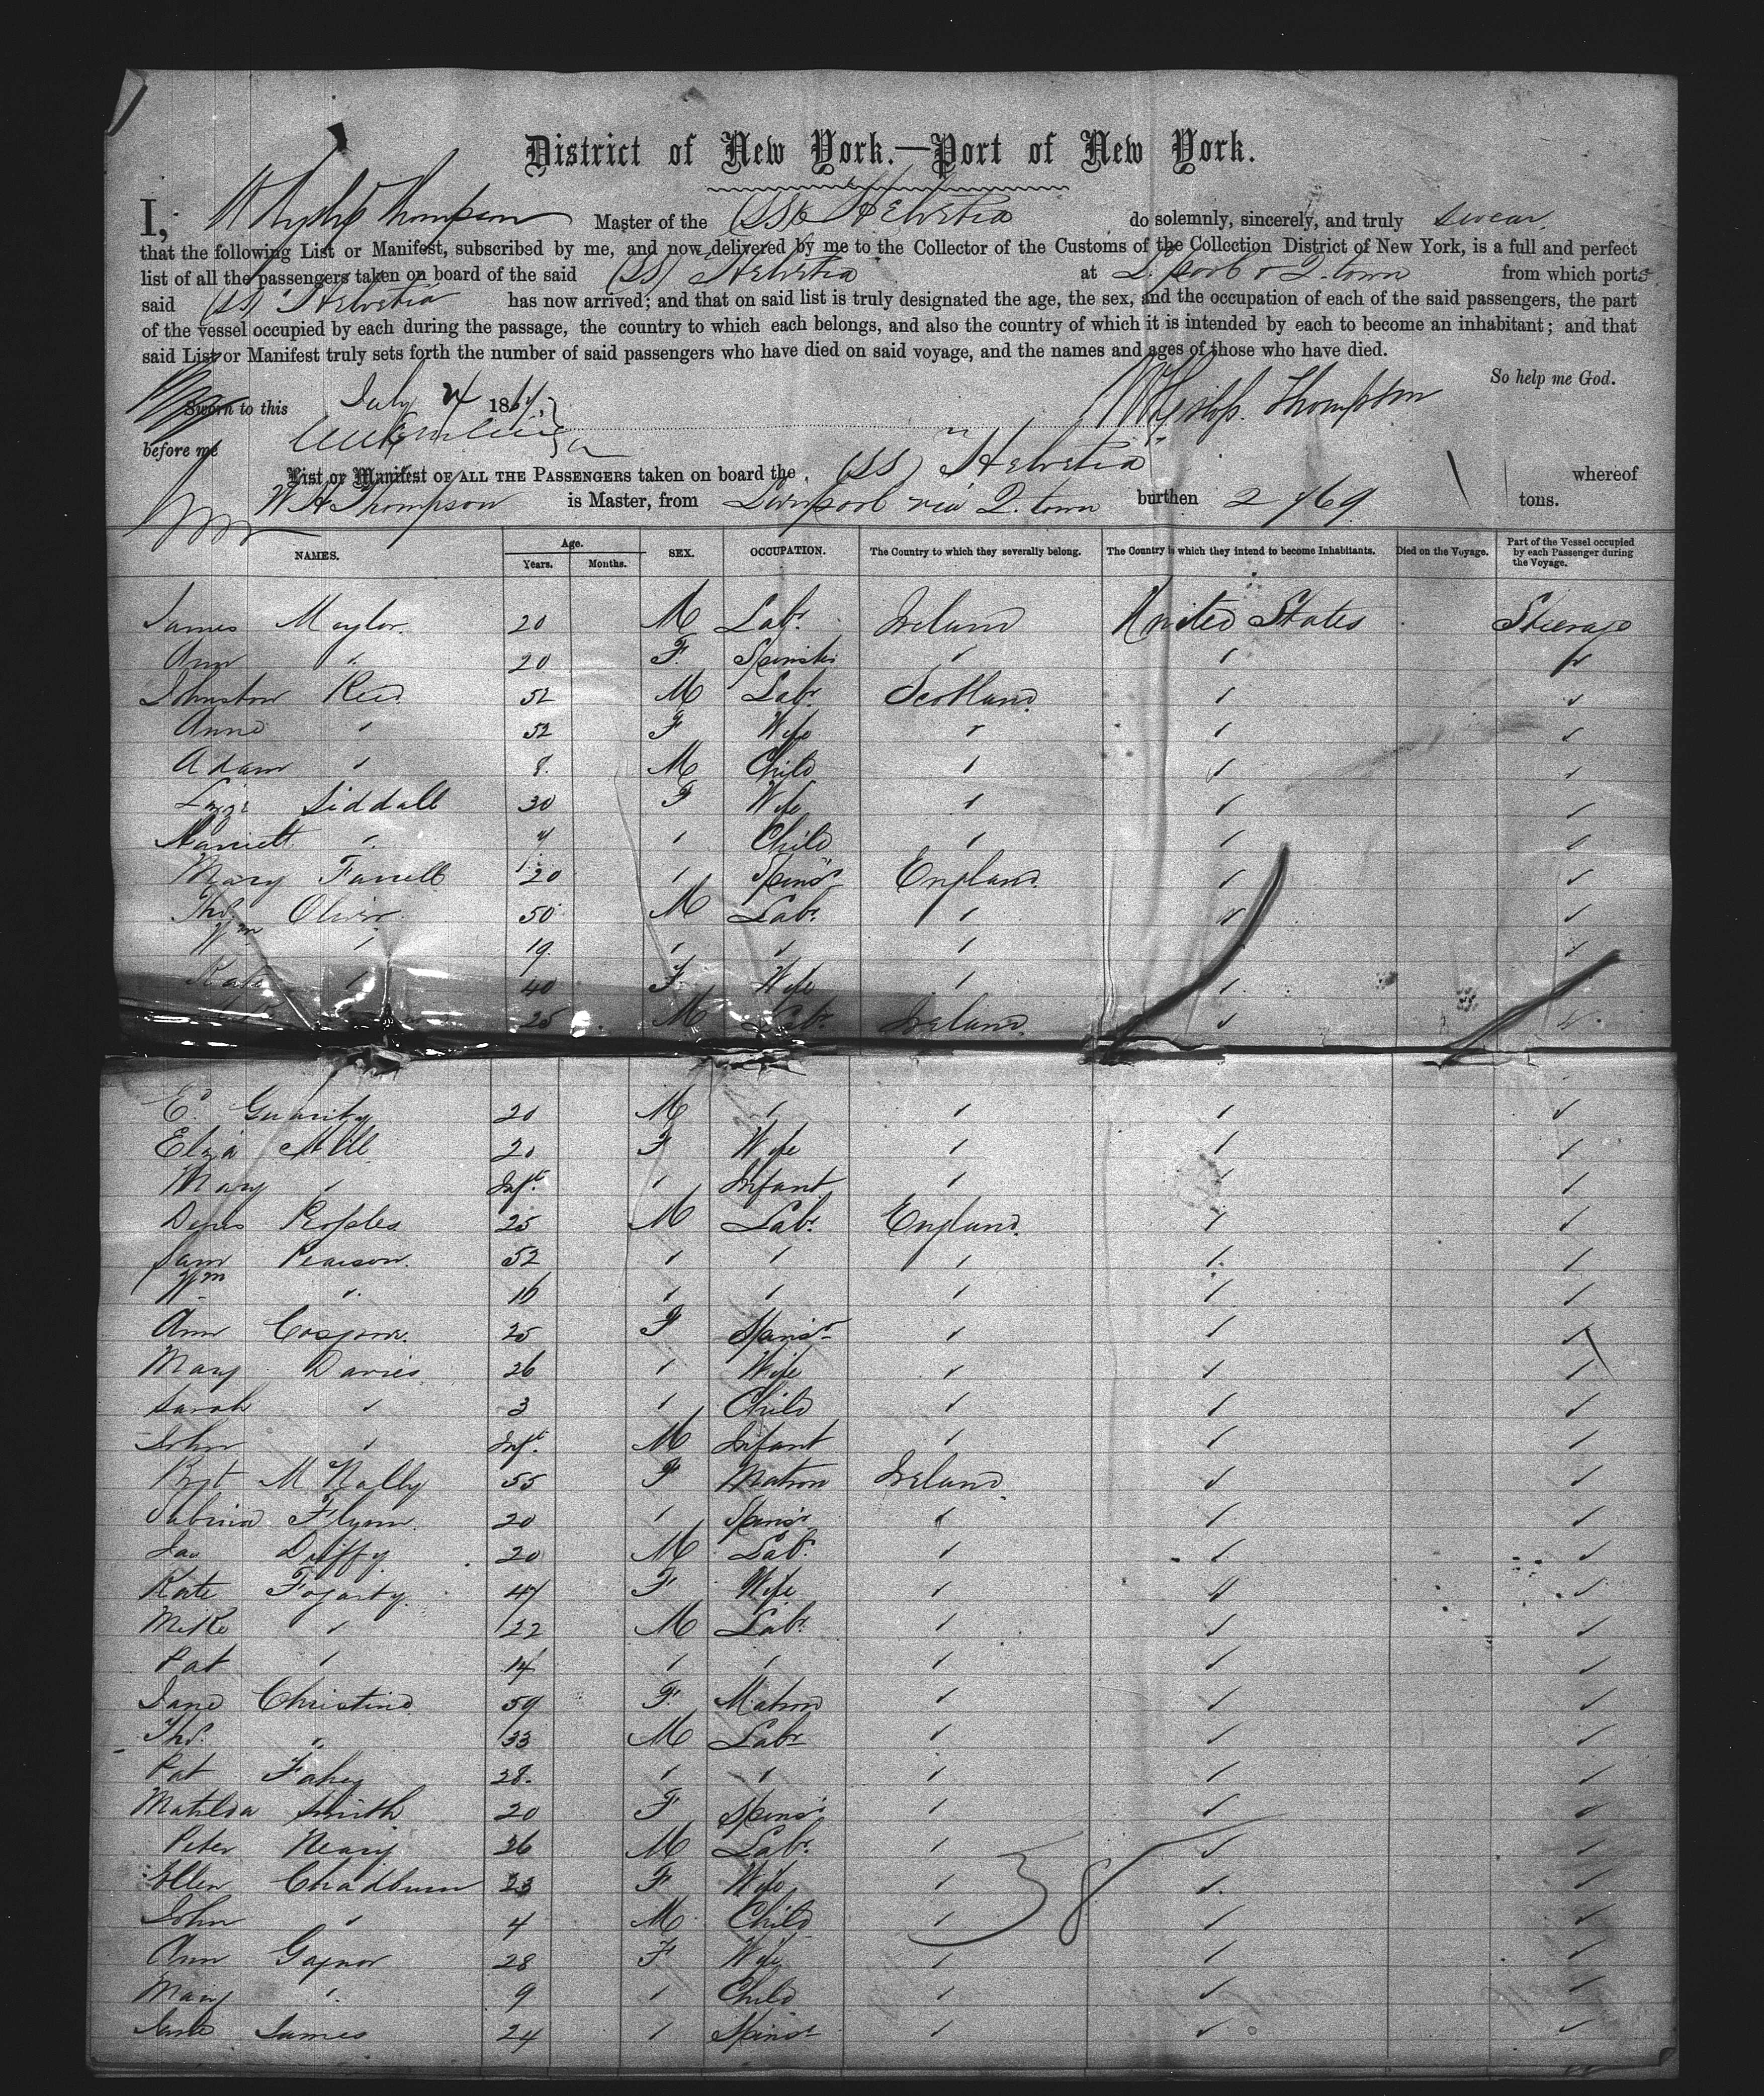 District of New York.—Port of New York.
I, Thompson Master of the (SS) Helvetia do solemnly, sincerely, and truly swear
that the following List or Manifest, subscribed by me, and now delivered by me to the Collector of the Customs of the Collection District of New York, is a full and perfect
list of all the passengers taken on board of the said (SS) Helvetia at L.pool & Q.town from which ports
said (SS) Helvetia has now arrived; and that on said list is truly designated the age, the sex, and the occupation of each of the said passengers, the part
of the vessel occupied by each during the passage, the country to which each belongs, and also the country of which it is intended by each to become an inhabitant; and that
said List or Manifest truly sets forth the number of said passengers who have died on said voyage, and the names and ages of those who have died.
So help me God.
Sworn to this July 186 Thompson
before me
List or Manifest OF ALL THE PASSENGERS taken on board the (SS) Helvetia whereof
W H Thompson is Master, from Liverpool via Q.town burthen 2769 tons.
NAMES. Age. Years. Months. SEX. OCCUPATION. The Country to which they severally belong. The Country in which they intend to become Inhabitants. Died on the Voyage. Part of the Vessel occupied by each Passenger during the Voyage.
James 20 M Labr. Ireland United States Steerage
Ann " 20 F. Spinster " " "
Johnston Reid 52 M Labr. Scotland " "
Anne " 52 F Wife " " "
Adam " 8 M Child " " "
Siddall 30 F Wife " " "
Harriett " 7 " Child " " "
Mary Farrell 20 " Spinsr England " "
Thos. Oliver 50 M Labr. " " "
Wm " 19 " " " " "
Kate " 40 F. Wife " " "
25 M Labr. Ireland " "
20 M " " " "
Eliza 20 F Wife " " "
Mary " Inft. " Infant " " "
Denis Peoples 25 M Labr. England " "
Sam Pearson 52 " " " " "
Wm " 16 " " " " "
Ann 25 F Spinsr " " "
Mary Davies 26 " Wife " " "
Sarah " 3 " Child " " "
John " Inft. M Infant " " "
Bgt McNally 55 F Matron Ireland " "
Sabina Flynn 20 " Spinsr " " "
Jas Duffy 20 M Labr. " " "
Kate Fogarty 47 F Wife " " "
Mike " 22 M Labr. " " "
Pat " 14 " " " " "
Jane Christine 59 F. Matron " " "
Thos. " 33 M Labr " " "
Pat Fahey 28 " " " " "
Matilda Smith 20 F Spinsr " " "
Peter Neary 26 M Labr. " " "
Ellen Chadburn 23 F Wife " " "
John " 4 M Child " " "
Ann Gaynor 28 F Wife " " "
Mary " 9 " Child " " "
Jane James 24 " Spinsr " " "
38